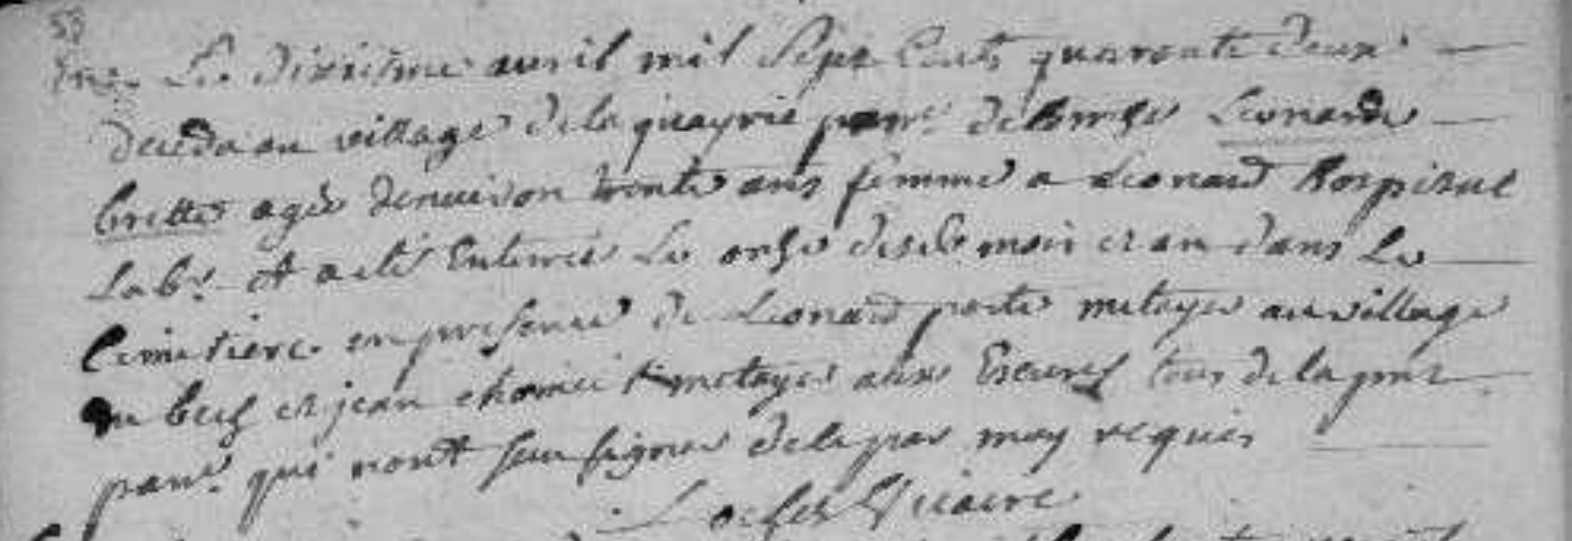 53
Le dixieme avril mil sept cents quarante deux
deceda au village de la quayrie parr: de Leonarde
brette agée denviron trente ans femme a Leonard hospital
labr. et a eté enterrée le onze desdt mois et an dans le
cimetiere en presence de Leonard porte metayer au village
du beuf et jean metayer aux Escures tous de la pnte
parr. qui nont seu signer de le par moy requis
Vicaire